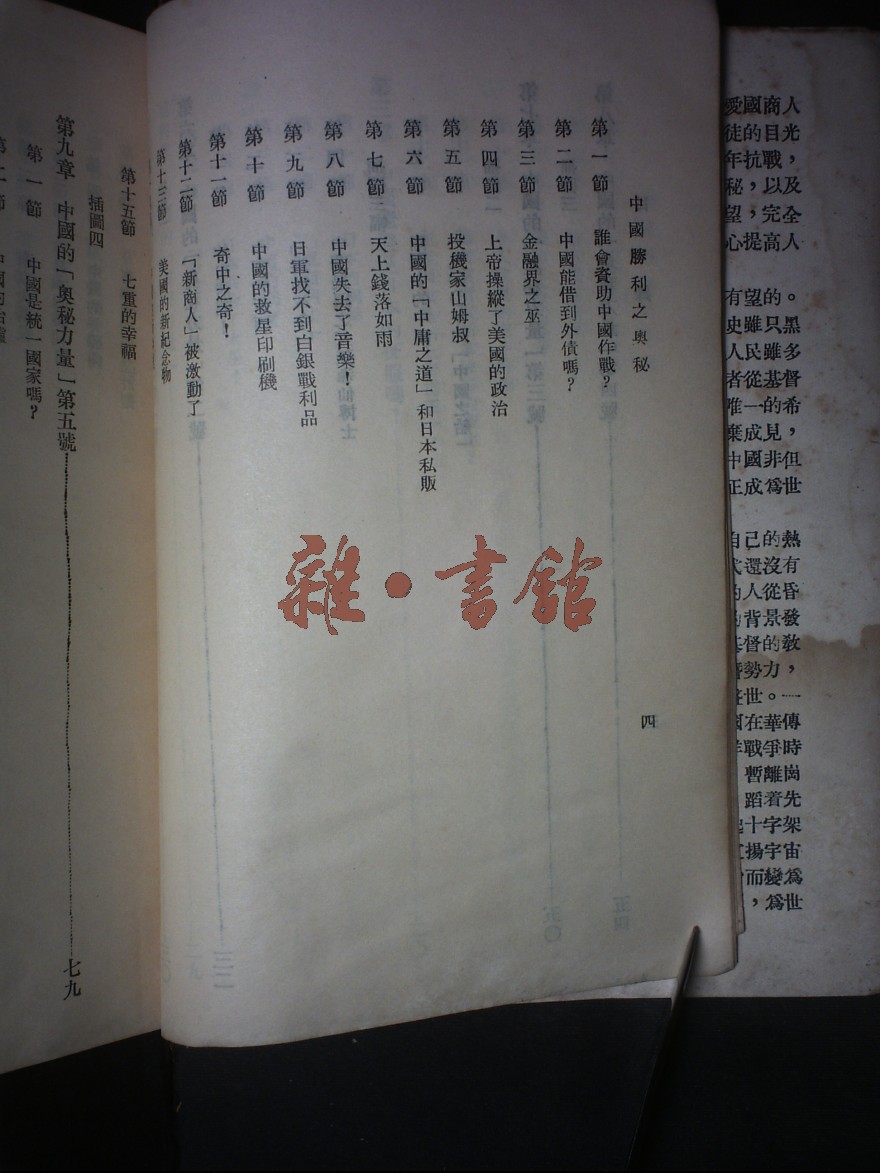 中國勝利之奧秘
四
第一節 誰會資助中國作戰?
第二節 中國能借到外債嗎?
第三節 金融界之巫
第四節 上帝操縱了美國的政治
第五節 投機家山姆叔
第六節 中國的「中庸之道」和日本私販
第七節 天上錢落如雨
第八節 中國失去了音樂!
第九節 日軍找不到白銀戰利品
第十節 中國的救星印刷機
第十一節 奇中之奇!
第十二節 「新商人」被激動了
第十三節 美國的新紀念物
第十五節 七重的幸福
插圖四
第九章 中國的「奧秘力量」第五號……七九
第一節 中國是統一國家嗎?
第二節
愛國商人
徒的目光
年抗戰，
秘，以及
望，完全
心提高人
有望的。
史雖只黑
人民雖多
者從基督
唯一的希
棄成見，
中國非但
正成爲世
自己的熱
還沒有
的人從昏
背景發
基督的教
勢力，
世。一
國在華傳
戰爭時
暫離崗
蹈着先
起十字架
揚宇宙
而變爲
，爲世
雜·書館